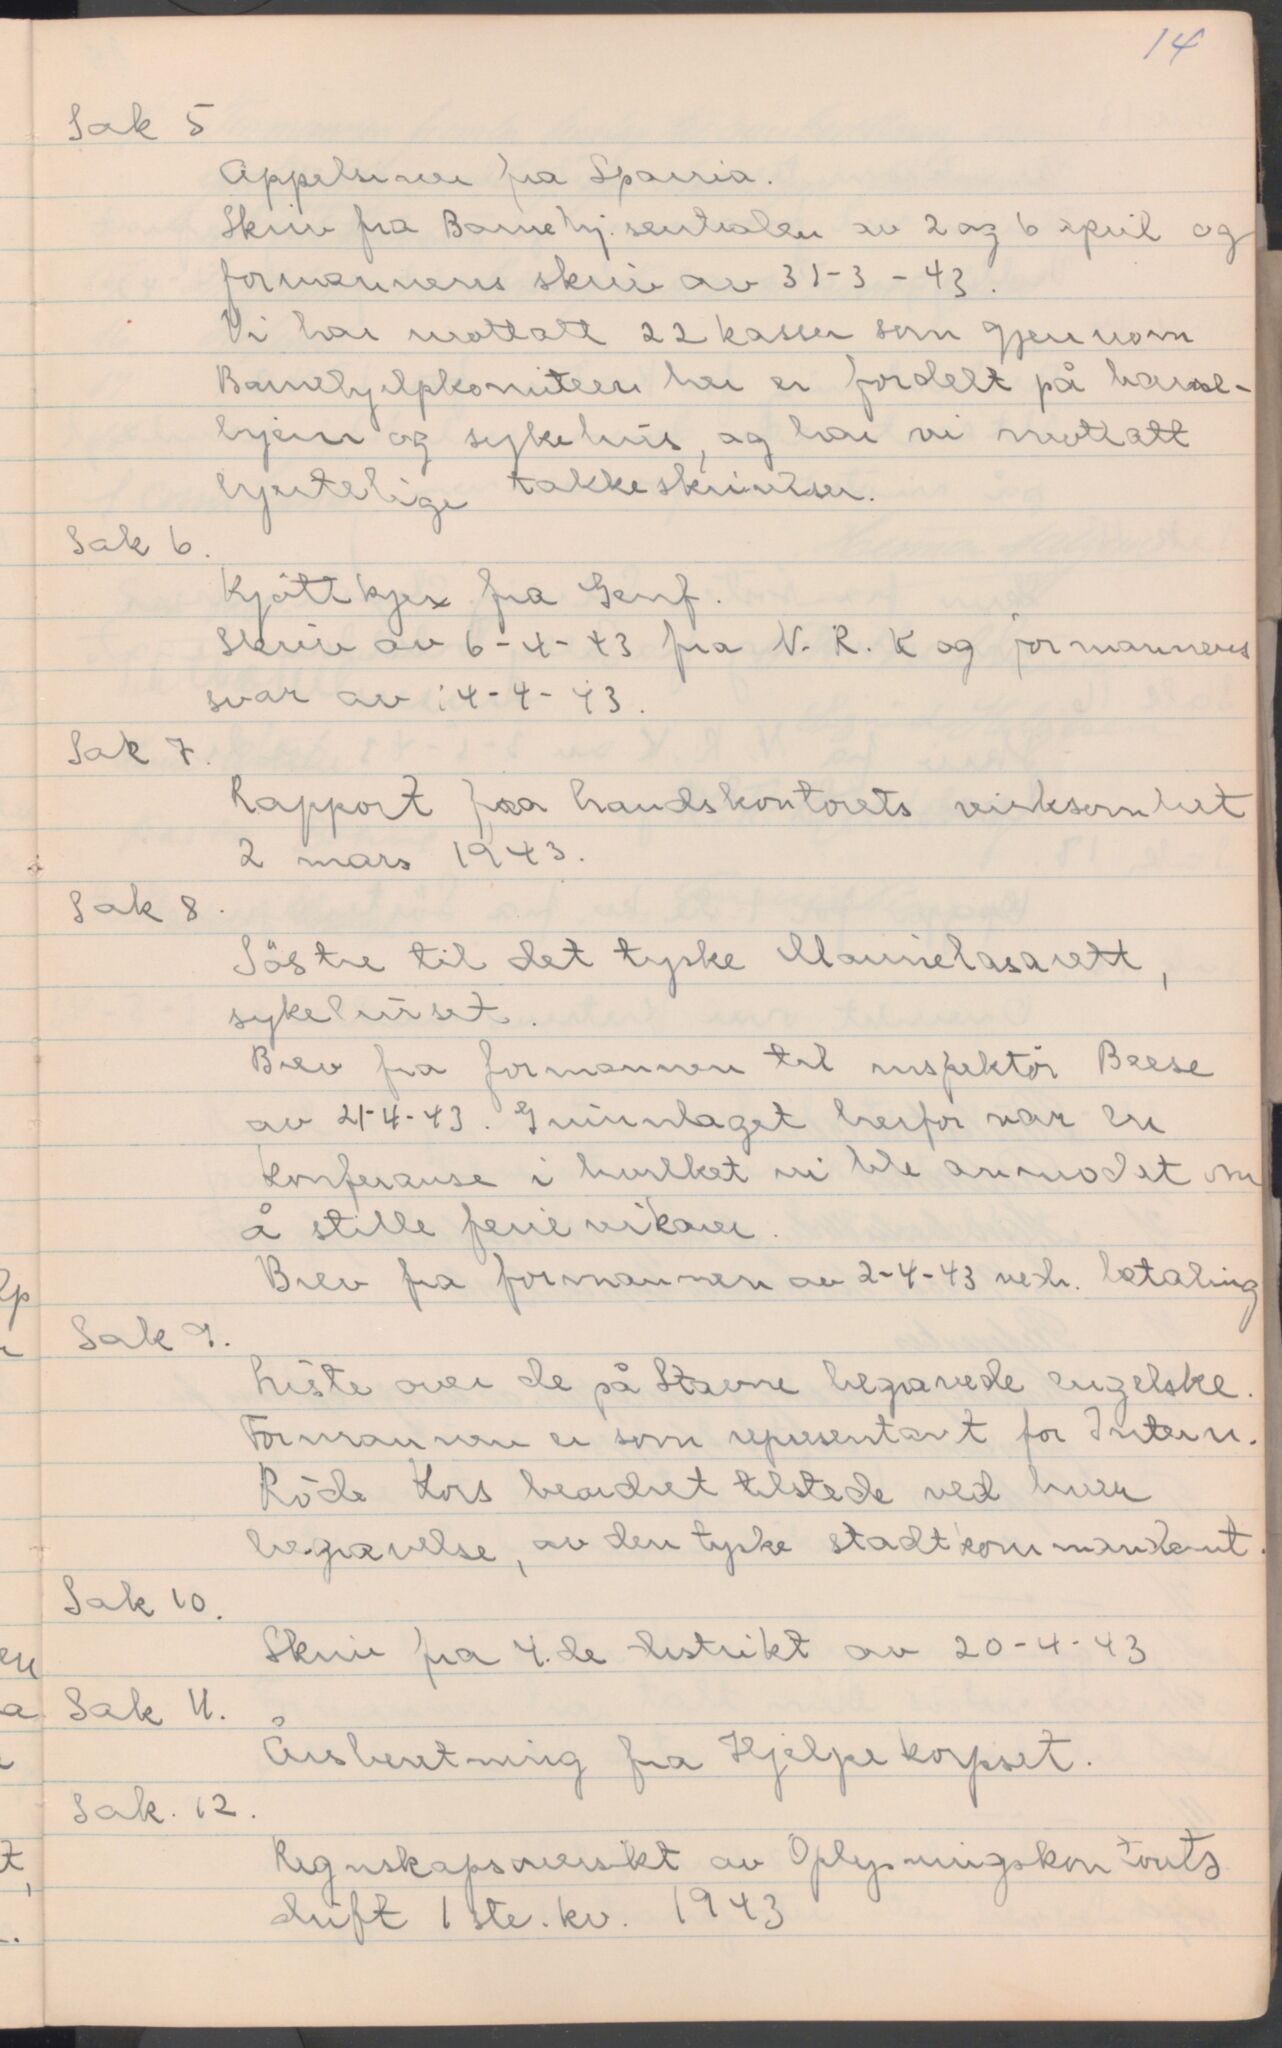 14
Sak 5
Appelsiner fra Spania.
Skriv fra Barnehj. sentralen av 2 og 6 april og
formannens skriv av 31-3-43.
Vi har mottatt 22 kasser som gjennom
Barnehjelpkomiteen her er fordelt på barne-
hjem og sykehus, og har vi mottatt
hjertelige takkeskrivelser.
Sak 6.
Kjöttkjex fra Genf.
Skriv av 6-4-43 fra N. R. K og formannens
svar av 14-4-43.
Sak 7.
Rapport fra Landskontorets virksomhet
2 mars 1943.
Sak 8.
Söstre til det tyske Marinelasarett,
sykehuset.
Brev fra formannen til inspektör Beese
av 21-4-43. Grunnlaget herfor var en
konferanse i hvilket vi ble anmodet om
å stille ferievikarer.
Brev fra formannen av 2-4-43 vedr. betaling
Sak 9.
Liste over de på Stavne begravede engelske.
Formannen er som representant for Intern.
Röde Kors beordret tilstede ved hver
begravelse, av den tyske stadtkommandant.
Sak 10.
Skriv fra 4.de distrikt av 20-4-43
Sak 11.
Årsberetning fra Hjelpekorpset.
Sak. 12.
Regnskapsoversikt av Oplysningskontorets
drift 1 ste. kv. 1943